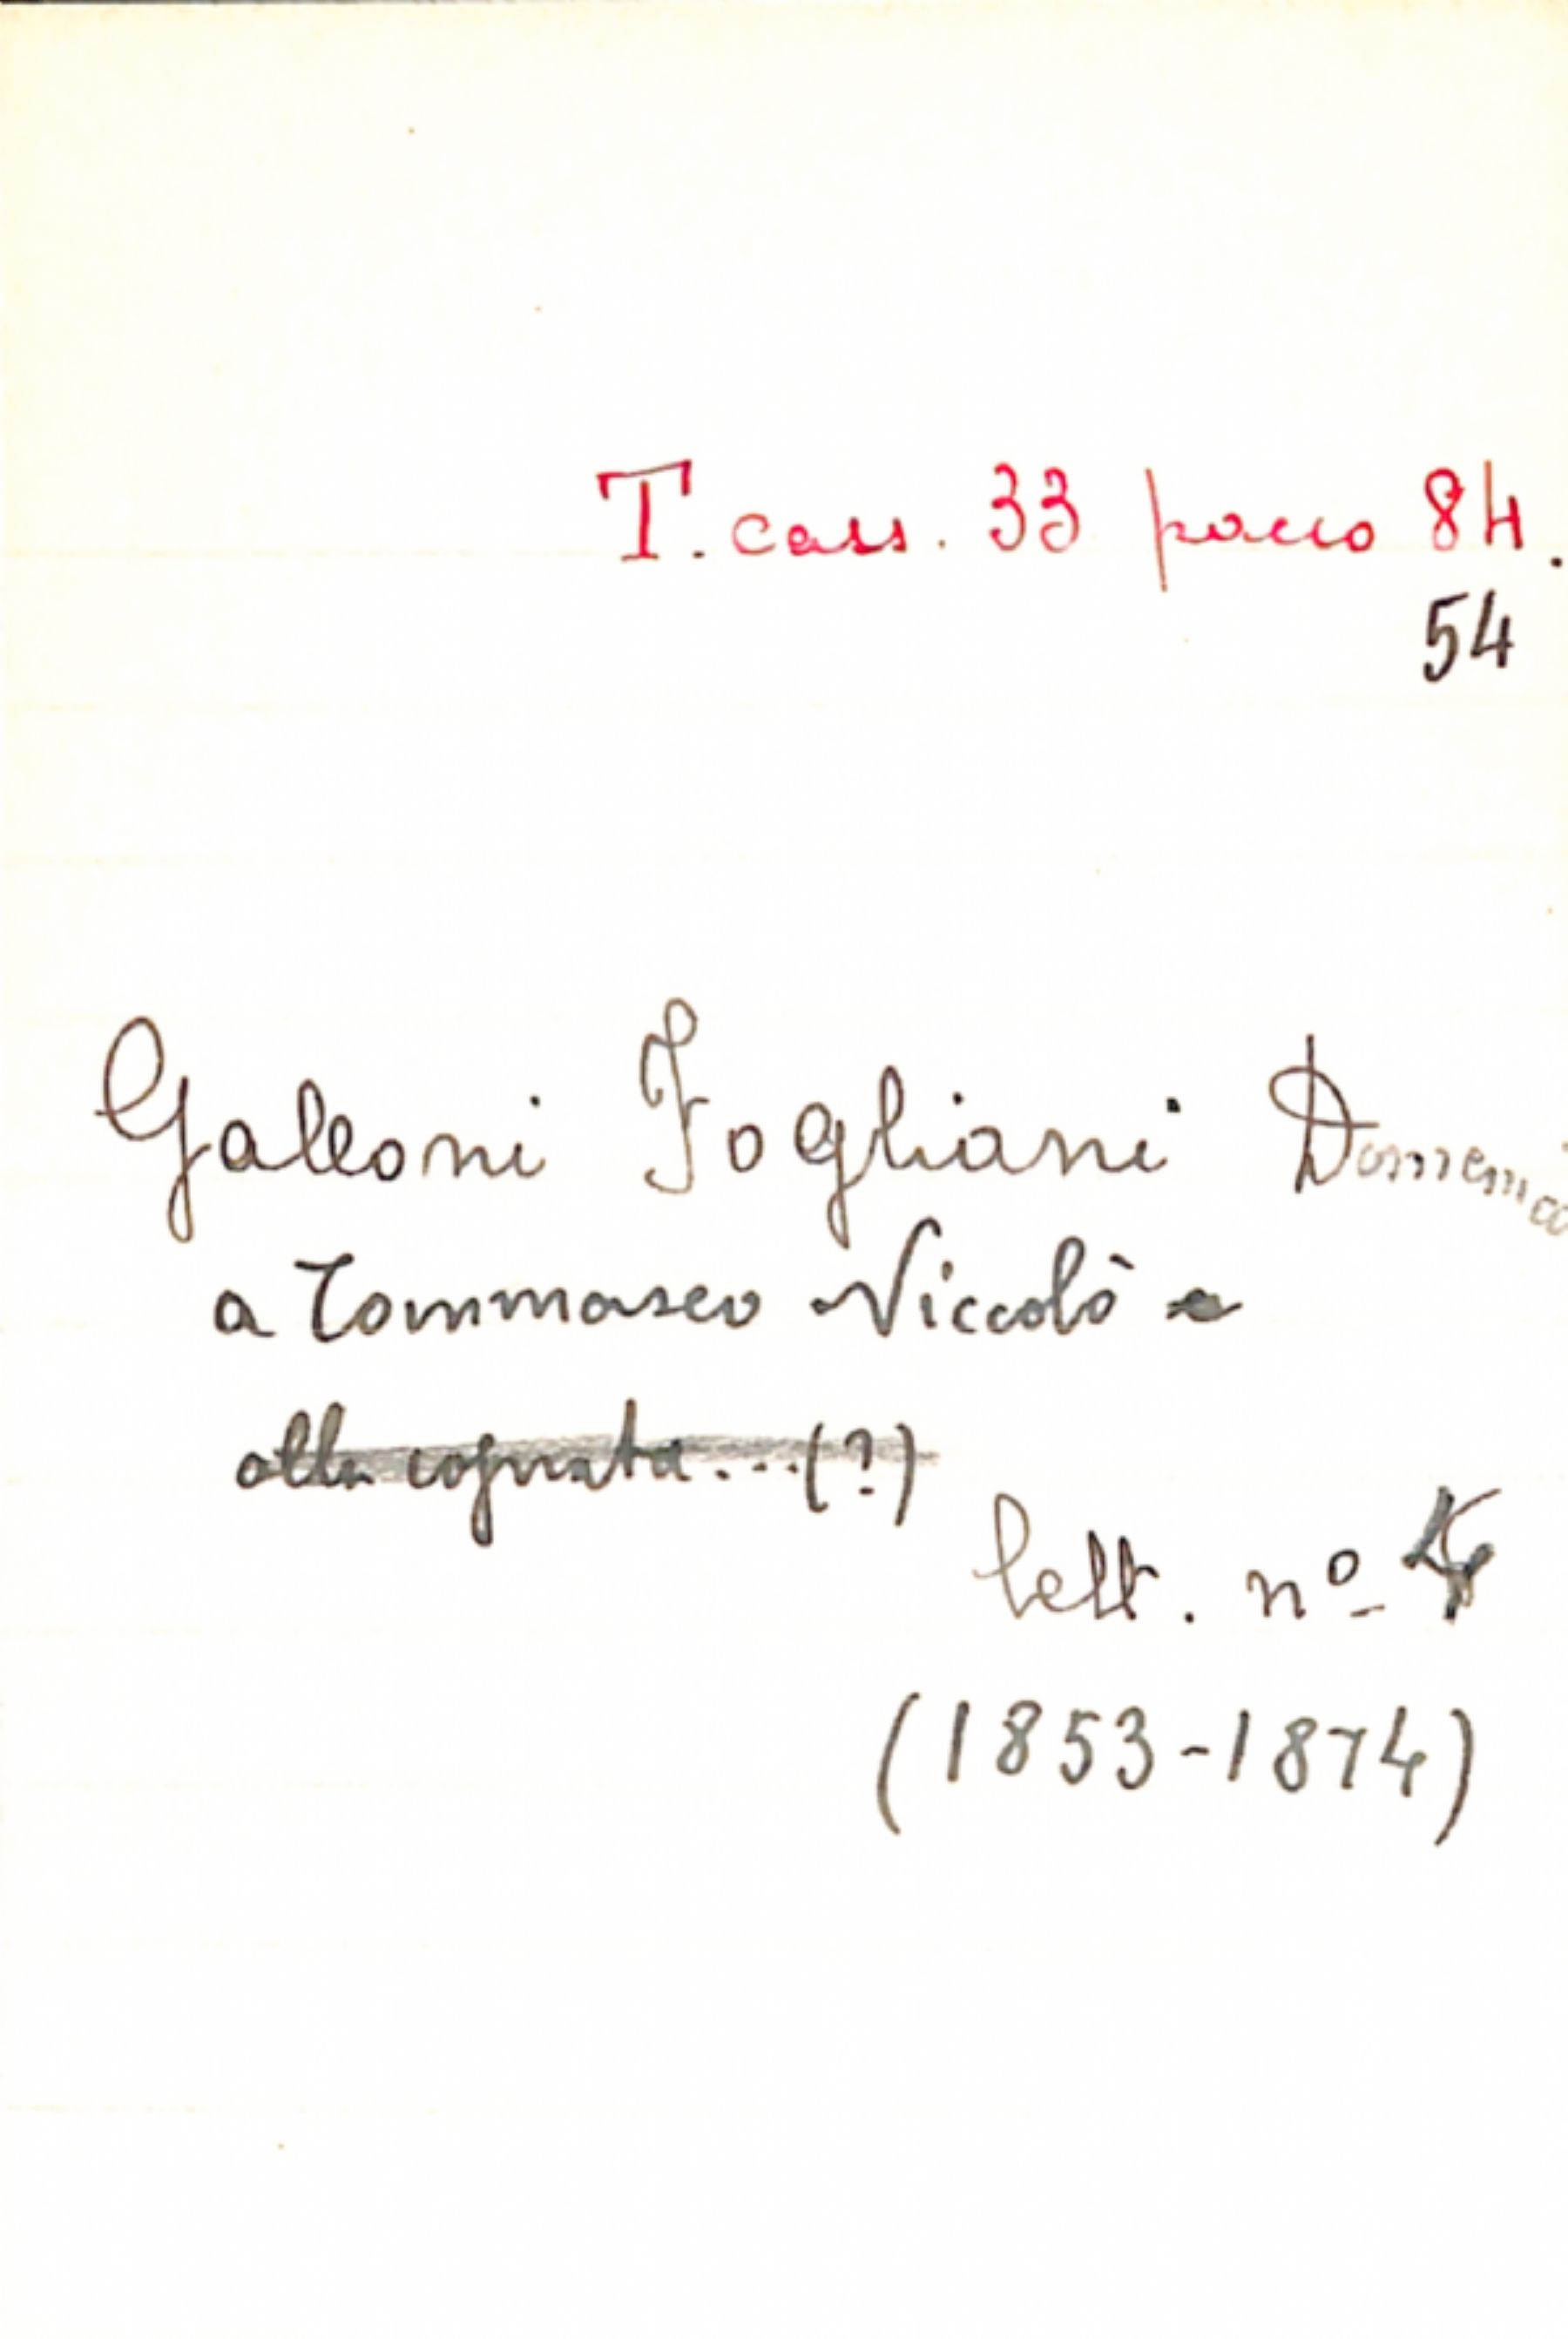 T. cass. 33 pacco 84.
54
Galeoni Fogliani Domenico
a Tommaseo Niccolò e
alla cognata...(?)
lett. nº
(1853-1874)